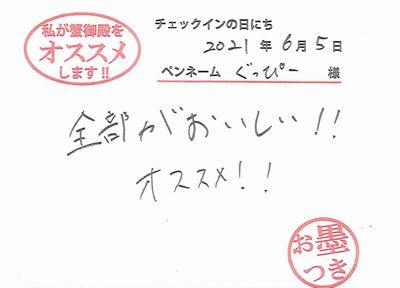 私が蟹御殿を
オススメ
します!!
チェックインの日にち
2021年6月5日
ペンネーム ぐっぴー 様
全部がおいしい!!
オススメ!!
お墨
つき